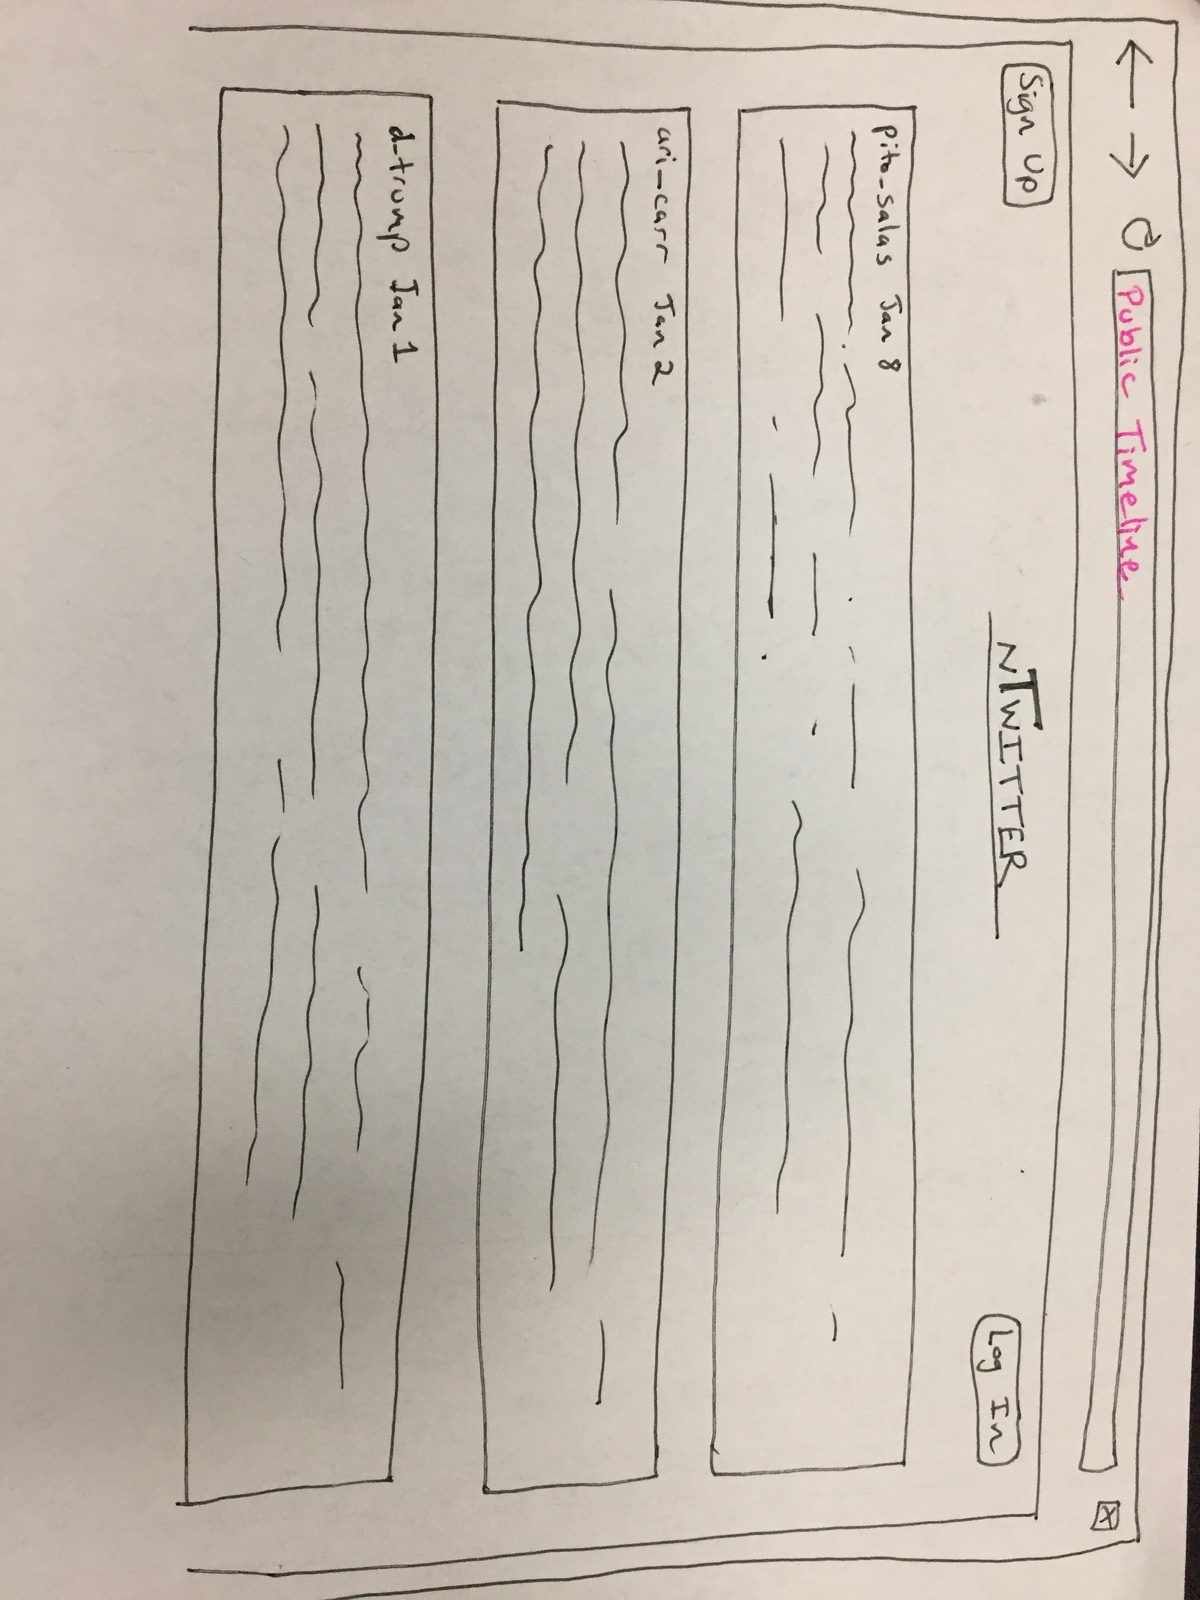 Public Timeline
Sign Up
nTWITTER
Log In
pito-salas Jan 8
ari-carr Jan 2
d-trump Jan 1